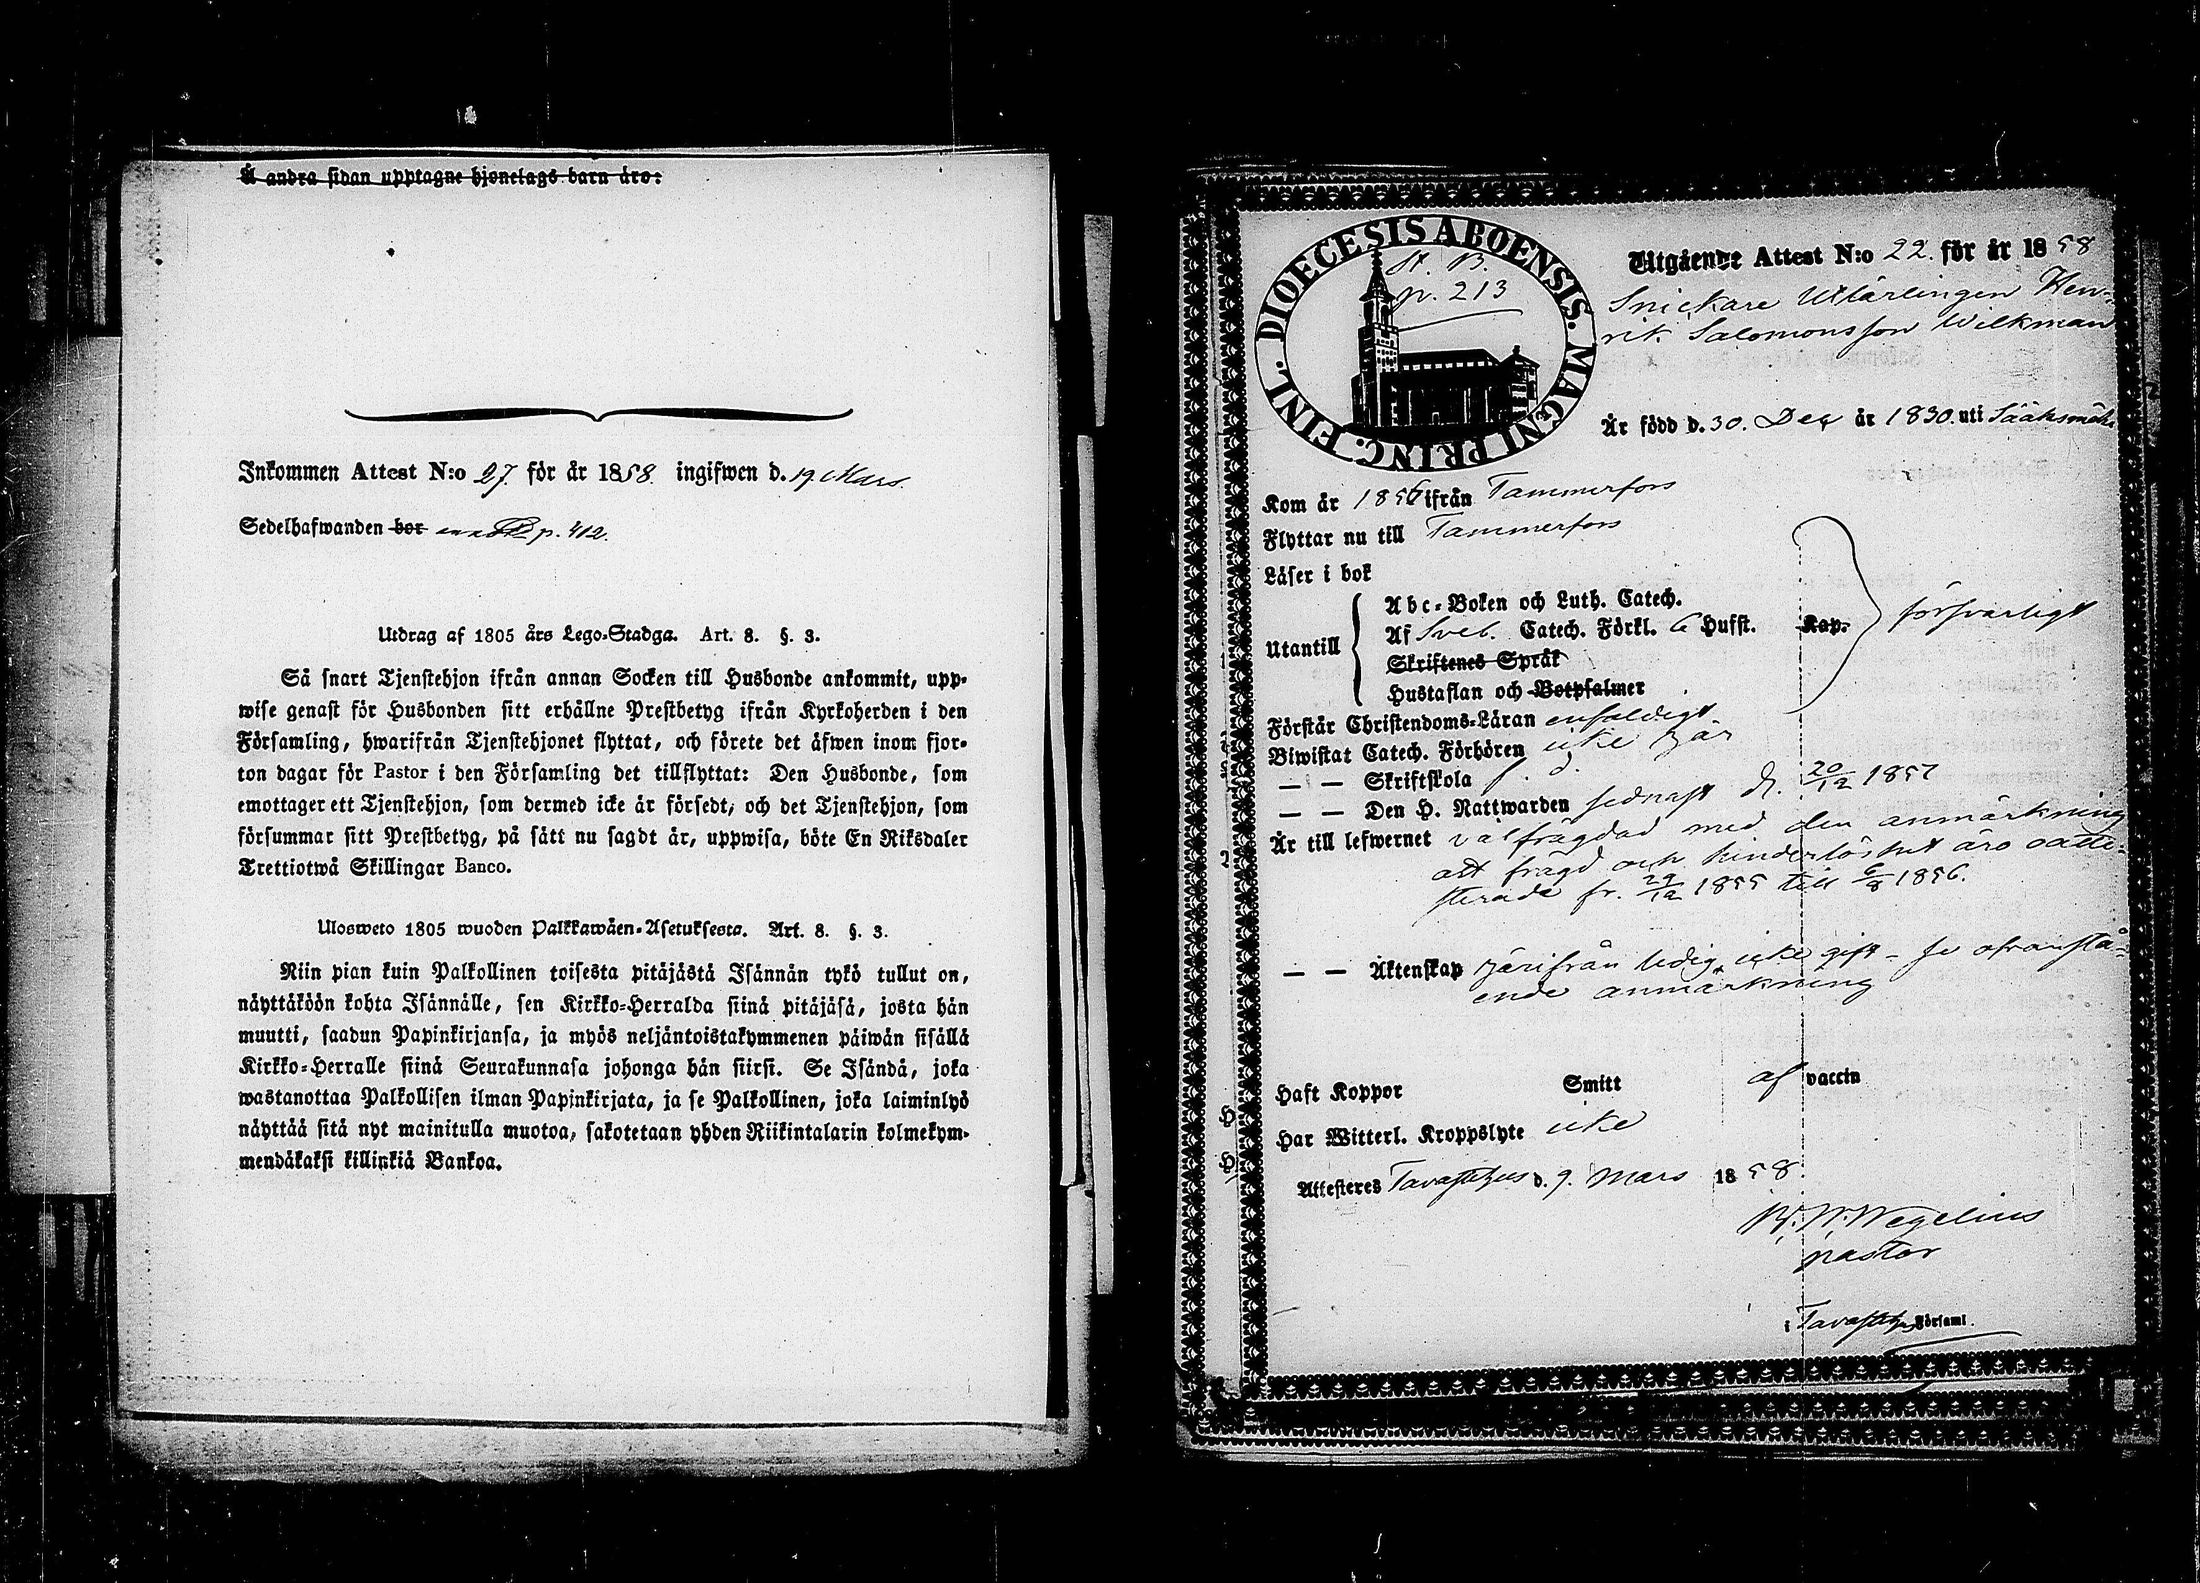 Å andra sidan upptagne hjonelags barn äro:
Inkommen Attest N:o 27 för år 1858. ingifwen d. 19 Mars.
Sedelhafwanden bor p. 412.
Utdrag af 1805 års Lego-Stadga. Art. 8. §. 3.
Så snart Tjenstehjon ifrån annan Socken till Husbonde ankommit, upp-
wise genast för Husbonden sitt erhållne Prestbetyg ifrån Kyrkoherden i den
Församling, hwarifrån Tjenstehjonet flyttat, och förete det äfwen inom fjor-
ton dagar för Pastor i den Församling det tillflyttat: Den Husbonde, som
emottager ett Tjenstehjon, som dermed icke är försedt, och det Tjenstehjon, som
försummar sitt Prestbetyg, på sätt nu sagdt är, uppwisa, böte En Riksdaler
Trettiotwå Skillingar Banco.
Ulosweto 1805 wuoden Palkkawäen-Asetuksesta. Art. 8. §. 3.
Niin pian kuin Palkollinen toisesta pitäjästä Isännän tykö tullut on,
näyttäköön kohta Isännälle, sen Kirkko-Herralda siinä pitäjäsä, josta hän
muutti, saadun Papinkirjansa, ja myös neljäntoistakymmenen päiwän sisällä
Kirkko-Herralle siinä Seurakunnasa johonga hän siirsi. Se Isändä, joka
wastanottaa Palkollisen ilman Papinkirjata, ja se Palkollinen, joka laiminlyö
näyttää sitä nyt mainitulla muotoa, sakotetaan yhden Riikintalarin kolmekym-
mendäkaksi killinkiä Bankoa.
DIOECESIS ABOENSIS. MAGNI PRINC. FINL.
St. B.
p. 213
Utgående Attest N:o 22. för år 1858
Snickare Utlärlingen Hen-
rik Salomonsson Wilkman
Är född d. 30. Dec är 1830. uti Sääksmäki
Kom år 1856 ifrån Tammerfors
Flyttar nu till Tammerfors
Läser i bok
Utantill
Abc-Boken och Luth. Catech.
Af Sveb. Catech. Förkl. 6 Hufst. Kap.
Skriftenes Språk
Hustaflan och Botpsalmer
försvarligt
Förstår Christendoms-Läran enfaldigt
Biwistat Catech. Förhören icke här
— — Skriftskola
— — Den H. Nattwarden sednast d. 20/12 1857
Är till lefwernet välfrägdad med den anmärkning
att frägd och hinderlöshet äro oatte-
sterade fr. 29/12 1855 till 6/8 1856.
— — Äktenskap härifrån ledig, icke gift - se ofvanstå-
ende anmärkning
Haft Koppor Smitt af vaccin
Har Witterl. Kroppslyte icke
Attesteres Tavastehus d. 9. Mars 1858.
Wegelius
pastor
i Tavastehus Församl.